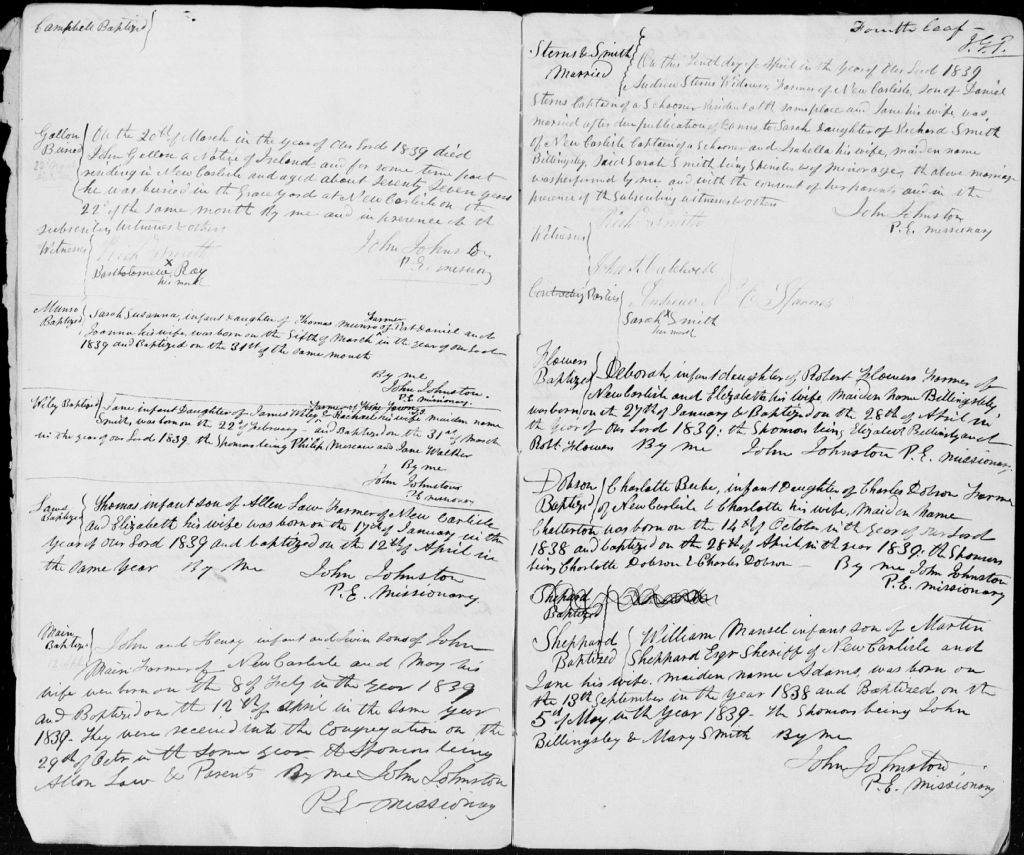 Campbell Baptized
Gallon
Buried
On the 20th of March in the year of Our Lord 1839 died
John Gallon a Native of Ireland and for some time past
residing in New Carlisle and aged about Seventy Seven years
he was buried in the Grave Yard at New Carlisle on the
22d of the same month By me and in presence of the
subscribing witnesses & others
John Johnston
P.E. missionary
Witnesses
Rich Smith
Bartholomew X Ray
his mark
Munro
Baptized
Farmer
Sarah Susanna, infant Daughter of Thomas Munro of Port Daniel and
Joanna his wife, was born on the fifth of March in the year of our Lord
1839 and Baptized on the 31st of the same month
By me
John Johnston
P.E. missionary.
Wiley Baptized
Farmer of
Jane infant Daughter of James Wiley & Rachael his wife, maiden name
Smith, was born on the 22d of February and Baptized on the 31st of March
in the year of our Lord 1839. the Sponsors being Philip, and Jane Walker
By me
John Johnston
P.E. missionary
Law
Baptized
Thomas infant son of Allen Law Farmer of New Carlisle
and Elizabeth his wife was born on the 17th of January in the
year of our Lord 1839 and baptized on the 12th of April in
the same year By Me John Johnston
P.E. missionary
Main
Baptized
John and Henry infant and twin sons of John
Main Farmer of New Carlisle and Mary his
wife were born on the 8 of in the year 1839
and Baptized on the 12th of April in the same year
1839. They were received into the Congregation on the
29th of Octr in the same year the Sponsors being
Allen Law & Parents By me John Johnston
P.E. missionary
Fourth Leaf
J.G.T.
Sterns & Smith
Married
On this Tenth day of April in the year of Our Lord 1839
Andrew Sterns Widower, Farmer of New Carlisle, Son of Daniel
Sterns Captain of a Schooner resident at the same place and Jane his wife, was
married after due publication of banns to Sarah Daughter of Richard Smith
of New Carlisle Captain of a Schooner and Isabella his wife, maiden name
Billingsley, said Sarah Smith being Spinster & of minor age, the above marriage
was performed by me, and with the consent of her parents and in the
presence of the subscribing witnesses & others
John Johnston
P.E. missionary
Witnesses
Rich Smith
John S. Caldwell
Contracting Parties
Andrew
Sarah X Smith
her mark
Flowers
Baptized
Deborah, infant daughter of Robert Flowers Farmer of
New Carlisle and Elizabeth his wife, Maiden name Billingsley,
was born on the 27th of January & Baptized on the 28th of April in
the year of our Lord 1839: the Sponsors being Elizabeth Billingsley and
Robt Flowers By me John Johnston P.E. missionary.
Dobson
Baptized
Charlotte Beebe, infant Daughter of Charles Dobson Farmer
of New Carlisle & Charlotte his wife, Maiden name
Chatterton was born on the 14th of October in the year of our Lord
1838 and baptized on the 28th of April in the year 1839: the Sponsors
being Charlotte Dobson & Charles Dobson - By me John Johnston
P.E. missionary
Shepard
Baptized
Sheppard
Baptized
William Mansel infant son of Martin
Sheppard Esqr Sheriff of New Carlisle and
Jane his wife. maiden name Adams, was born on
the 13th September in the year 1838 and Baptized on the
5th of May in the Year 1839. The Sponsors being John
Billingsley & Mary Smith By me
John Johnston
P.E. missionary